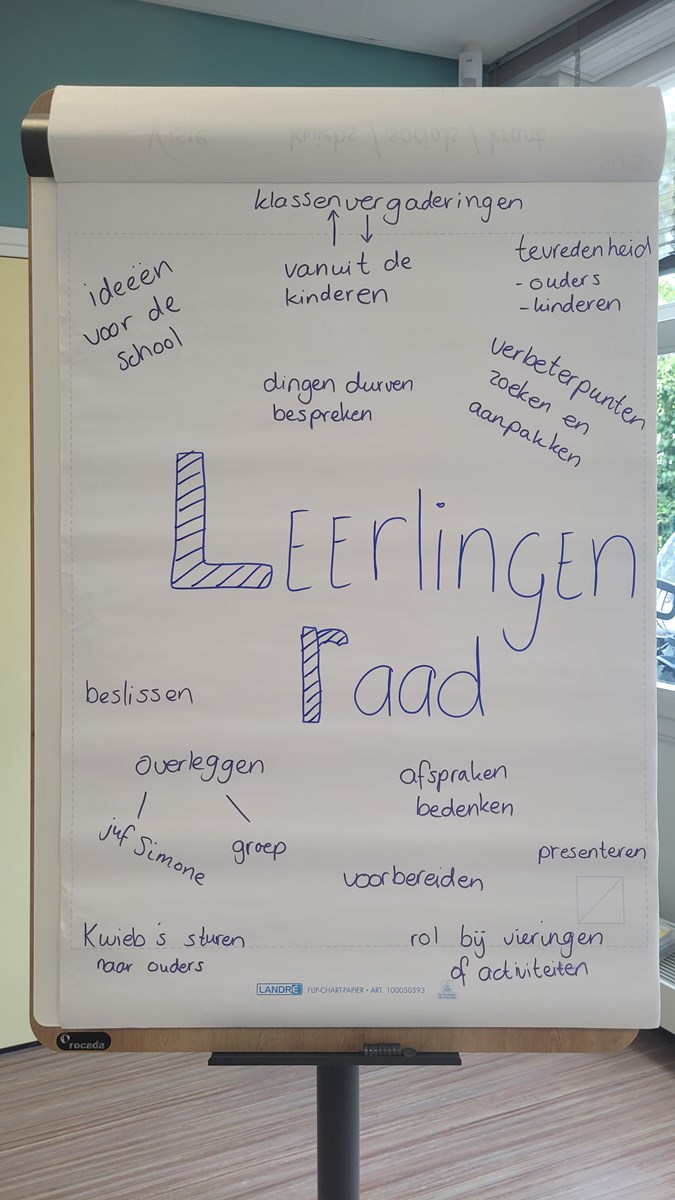 Visie kwiebs / socials / krant
klassenvergaderingen
↑ ↓
vanuit de
kinderen
tevredenheid
- ouders
- kinderen
ideeën
voor de
school
dingen durven
bespreken
verbeterpunten
zoeken en
aanpakken
LEERlingEn
raad
beslissen
overleggen
juf Simone
groep
afspraken
bedenken
presenteren
voorbereiden
Kwieb's sturen
naar ouders
rol bij vieringen
of activiteiten
LANDRÉ FLIP-CHART-PAPIER • ART. 100050593
rocada